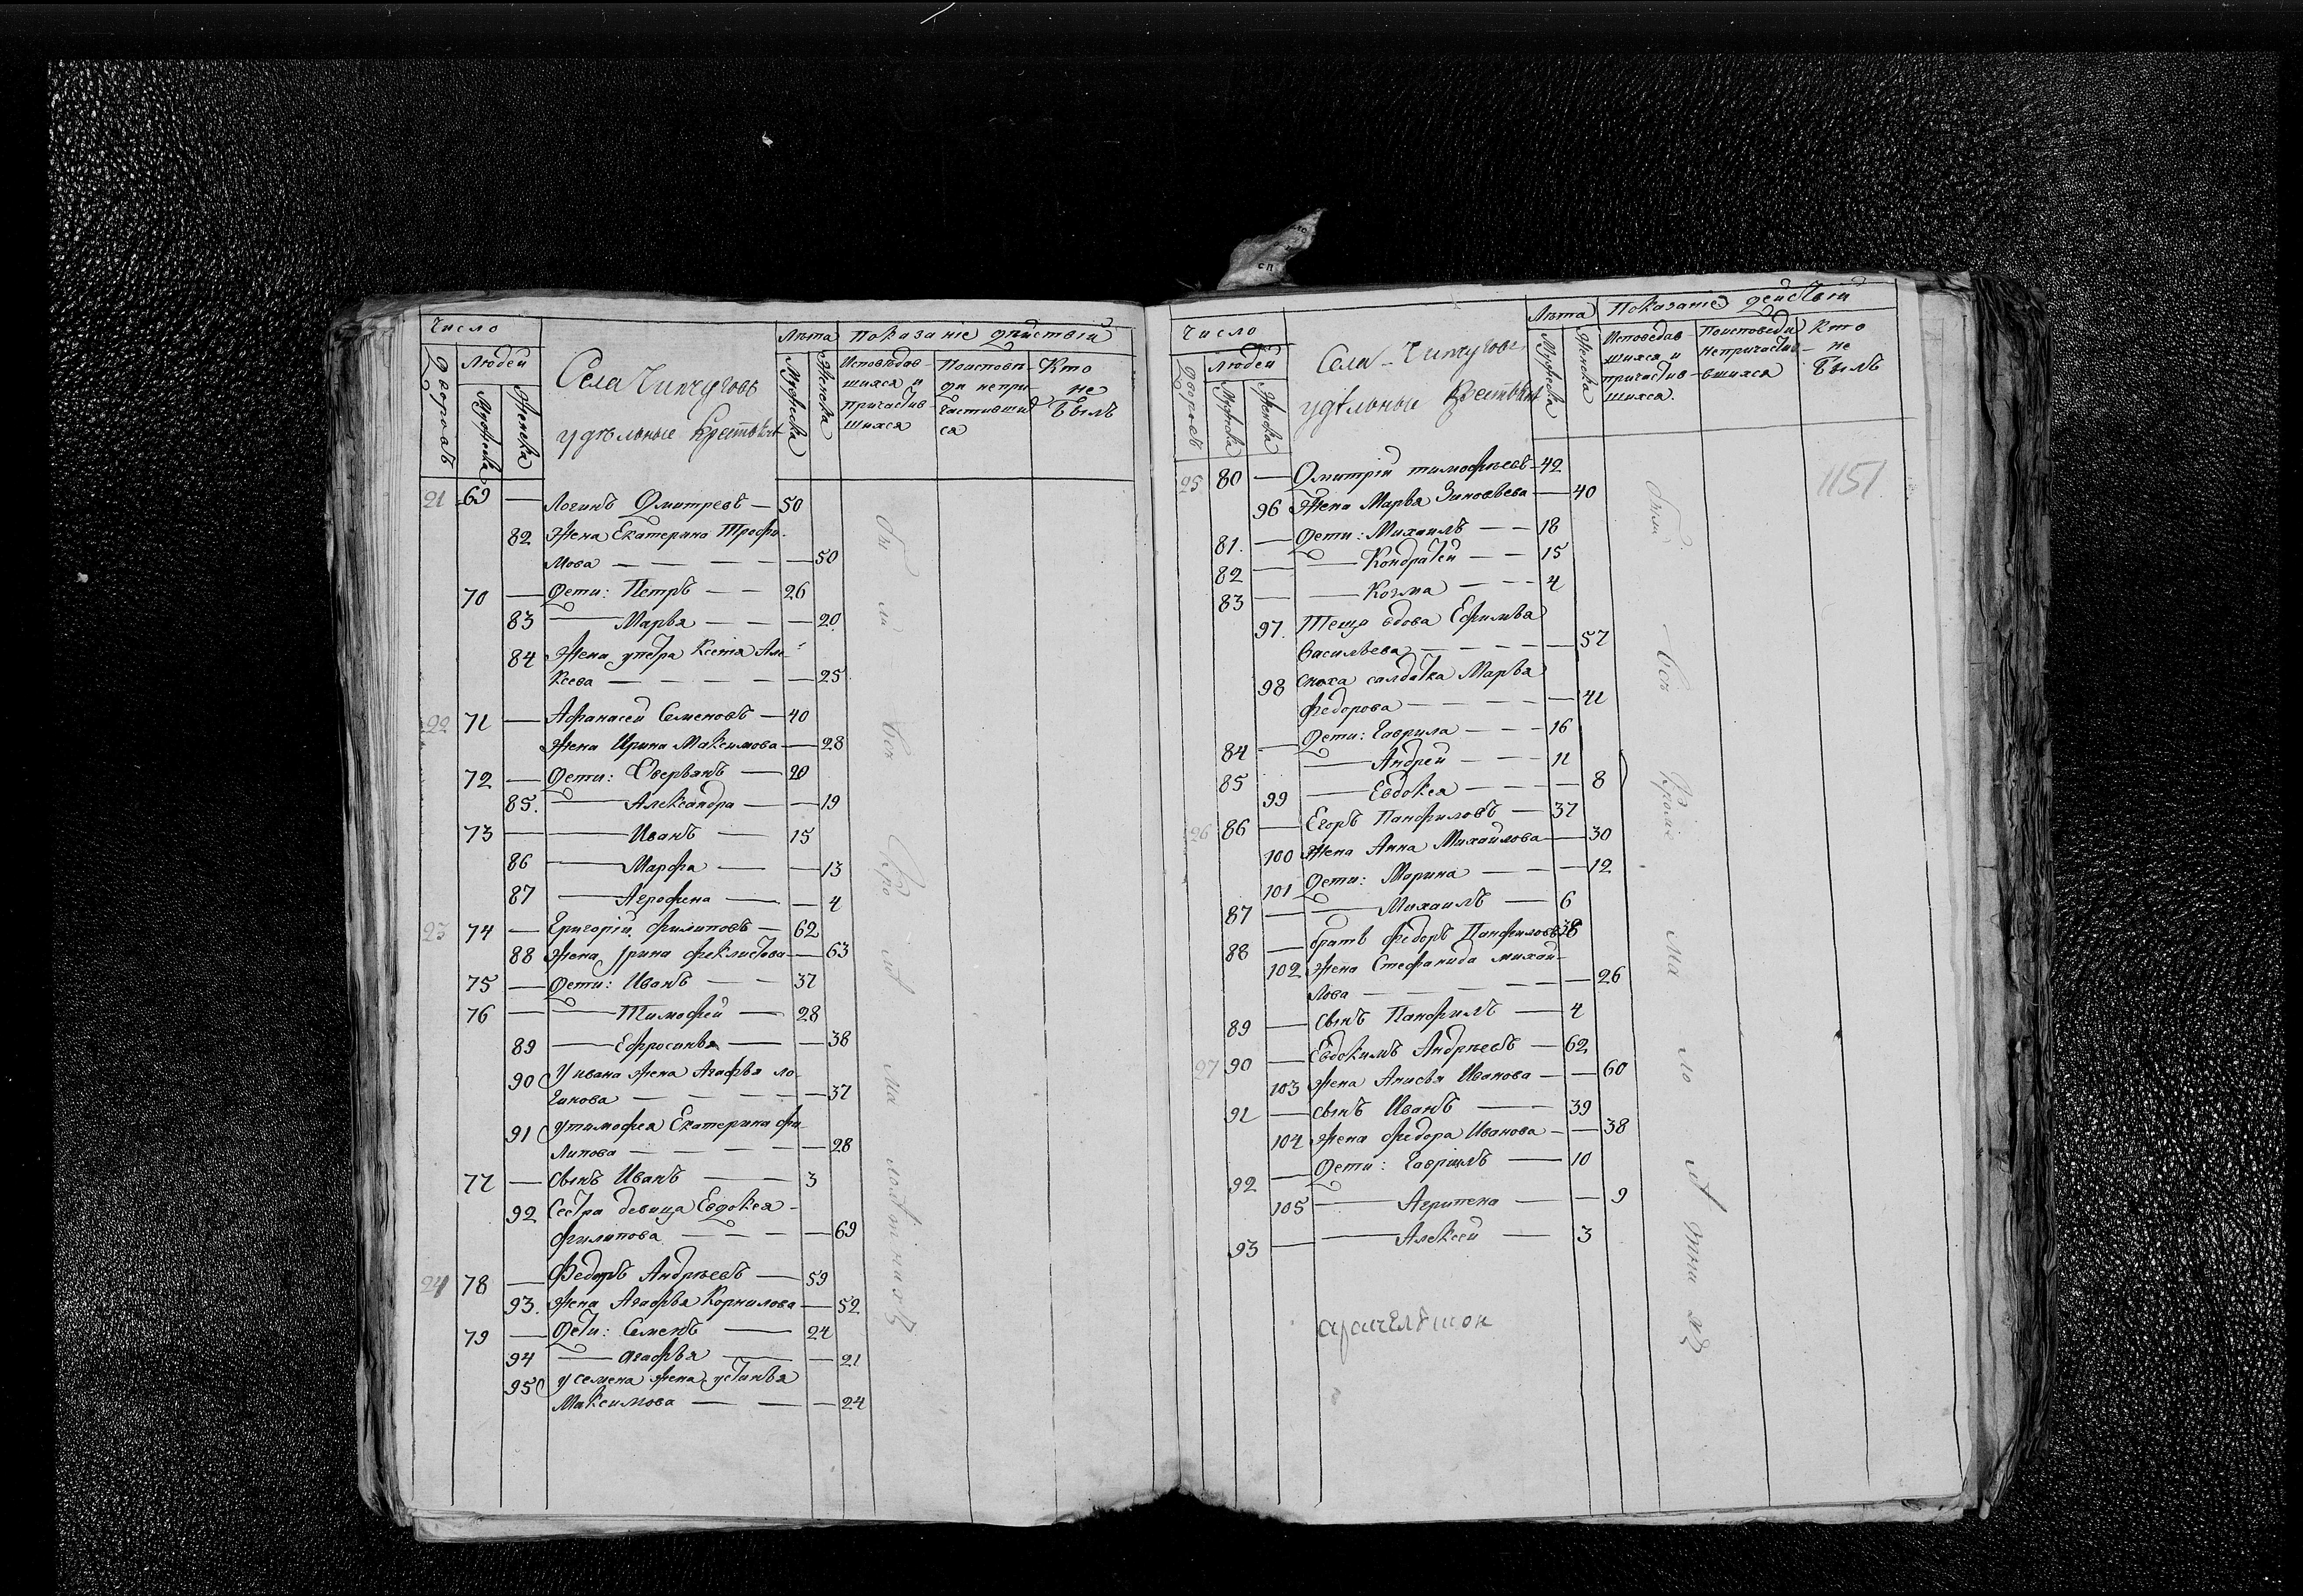 Число
Людей
Дворовъ
Мужеска
Женска
Села Чипчугова
удѣльные крестьяне
Лѣта
Мужеска
Женска
Показаніе дѣйствій
Исповѣдав-
шихся и
причастив-
шихся
Поисповѣ-
ди непри-
частивши
ся
Кто
не
былъ
21 69 — Логинъ Дмитревъ — 50
82 Жена Екатерина Трофи-
мова — 50
70 — Дети: Петръ — 26
83 — Марѳа — 20
84 Жена у петра Ксенія Але-
ксева — 25
22 71 — Афанасей Семеновъ — 40
Жена Ирина Максимова — 28
72 — Дети: — 20
85. — Александра — 19
73 — Иванъ — 15
86 — Марфа — 13
87 — Аграфена — 4
23 74 — Григорій филиповъ — 62
88 Жена Ирина феклистова — 63
75 — Дети: Иванъ — 37
76 — Тимофей — 28
89 — Ефросинья — 38
90 У ивана жена Агафья ло-
гинова — 37
91 У тимофея Екатерина фи-
липова — 28
77 — Сынъ Иванъ — 3
92 Сестра девица Евдокея
филипова — 69
24 78 — Федоръ Андрѣевъ — 59
93. Жена Агафья Корнилова — 52
79 — Дети: Семенъ — 24
94 — Агафья — 21
95 У семена жена устинья
Максимова — 24
Бы ли всѣ кро мѣ ма лолѣтныхъ
Число
Людей
Дворовъ
Мужеска
Женска
Села Чипчугова
удѣльные крестьяне
Лѣта
Мужеска
Женска
Показаніе действій
Исповедав
шихся и
причастив-
шихся.
Поисповеди
непричасти-
вшихся
Кто
не
былъ
1151
25 80 — Дмитрій тимофѣевъ — 42
96 Жена Марья Зиновьева — 40
81. — Дети: Михаилъ — 18
82 — Кондратей — 15
83 — Козма — 4
97. Теща вдова Ефимья
Васильева — 57
98 Сноха салдатка Марья
Федорова — 41
84 — Дети: Гаврила — 16
85 — Андрей — 11
99 — Евдокея — 8
26 86 — Егоръ Панфиловъ — 37
100 Жена Анна Михайлова — 30
101 Дети: Марина — 12
87 — Михаилъ — 6
88 — братъ федоръ Панфиловъ 38
102 Жена Стефанида михай-
лова — 26
89 — Сынъ Панфилъ — 4
27 90 — Евдокимъ Андрѣевъ — 62
103 Жена Анисья Иванова — 60
91 — Сынъ Иванъ — 39
104 Жена федора Иванова — 38
92 — Дети: Гавріилъ — 10
105 — Агрипена — 9
93 — Алексей — 3
Были всѣ кромѣ ма ло лѣтныхъ